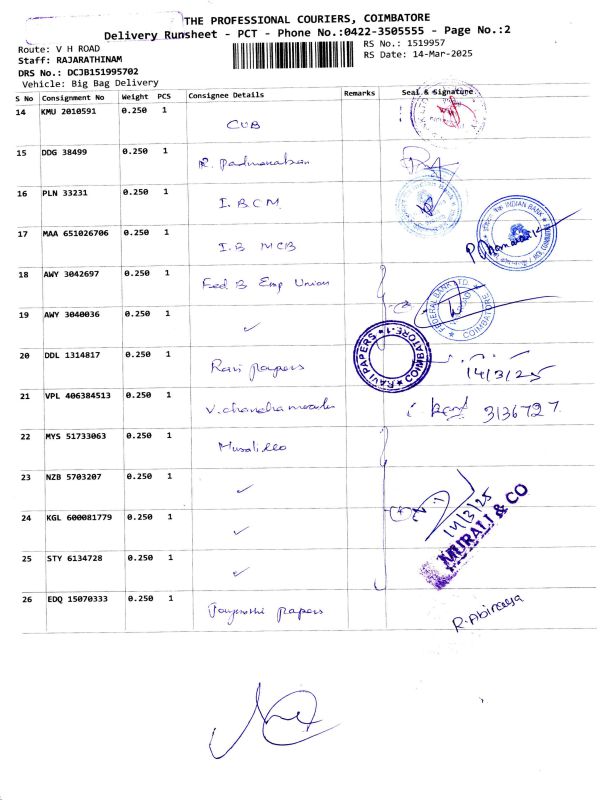 THE PROFESSIONAL COURIERS, COIMBATORE
Delivery Runsheet - PCT - Phone No.:0422-3505555 - Page No.:2
Route: V H ROAD
RS No.: 1519957
Staff: RAJARATHINAM
RS Date: 14-Mar-2025
DRS No.: DCJB151995702
Vehicle: Big Bag Delivery
S No Consignment No Weight PCS Consignee Details Remarks Seal & Signature
14 KMU 2010591 0.250 1 CUB
15 DDG 38499 0.250 1 R. Padmanaban
16 PLN 33231 0.250 1 I.B.C.M.
17 MAA 651026706 0.250 1 I.B MCB
INDIAN BANK
18 AWY 3042697 0.250 1 Fed B Emp Union
FEDERAL BANK LTD. COIMBATORE
19 AWY 3040036 0.250 1 ✓
20 DDL 1314817 0.250 1 Ravi papers
RAVI PAPERS COIMBATORE-1
14/3/25
21 VPL 406384513 0.250 1
3136727
22 MYS 51733063 0.250 1
23 NZB 5703207 0.250 1 ✓
24 KGL 600081779 0.250 1 ✓
14/3/25
MURALI & CO
25 STY 6134728 0.250 1 ✓
26 EDQ 15070333 0.250 1 papers
R. Abinaya